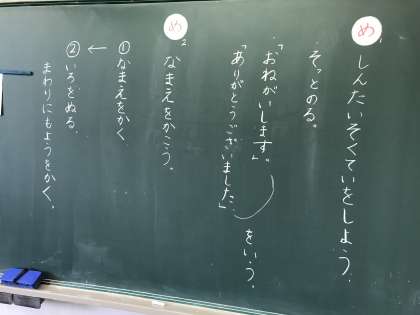 め1
しんたいそくていをしよう.
・そっとのる。
・「おねがいします。」
「ありがとうございました」をいう。
め2
なまえをかこう。
①なまえをかく
↓
②いろをぬる.
まわりにもようをかく。